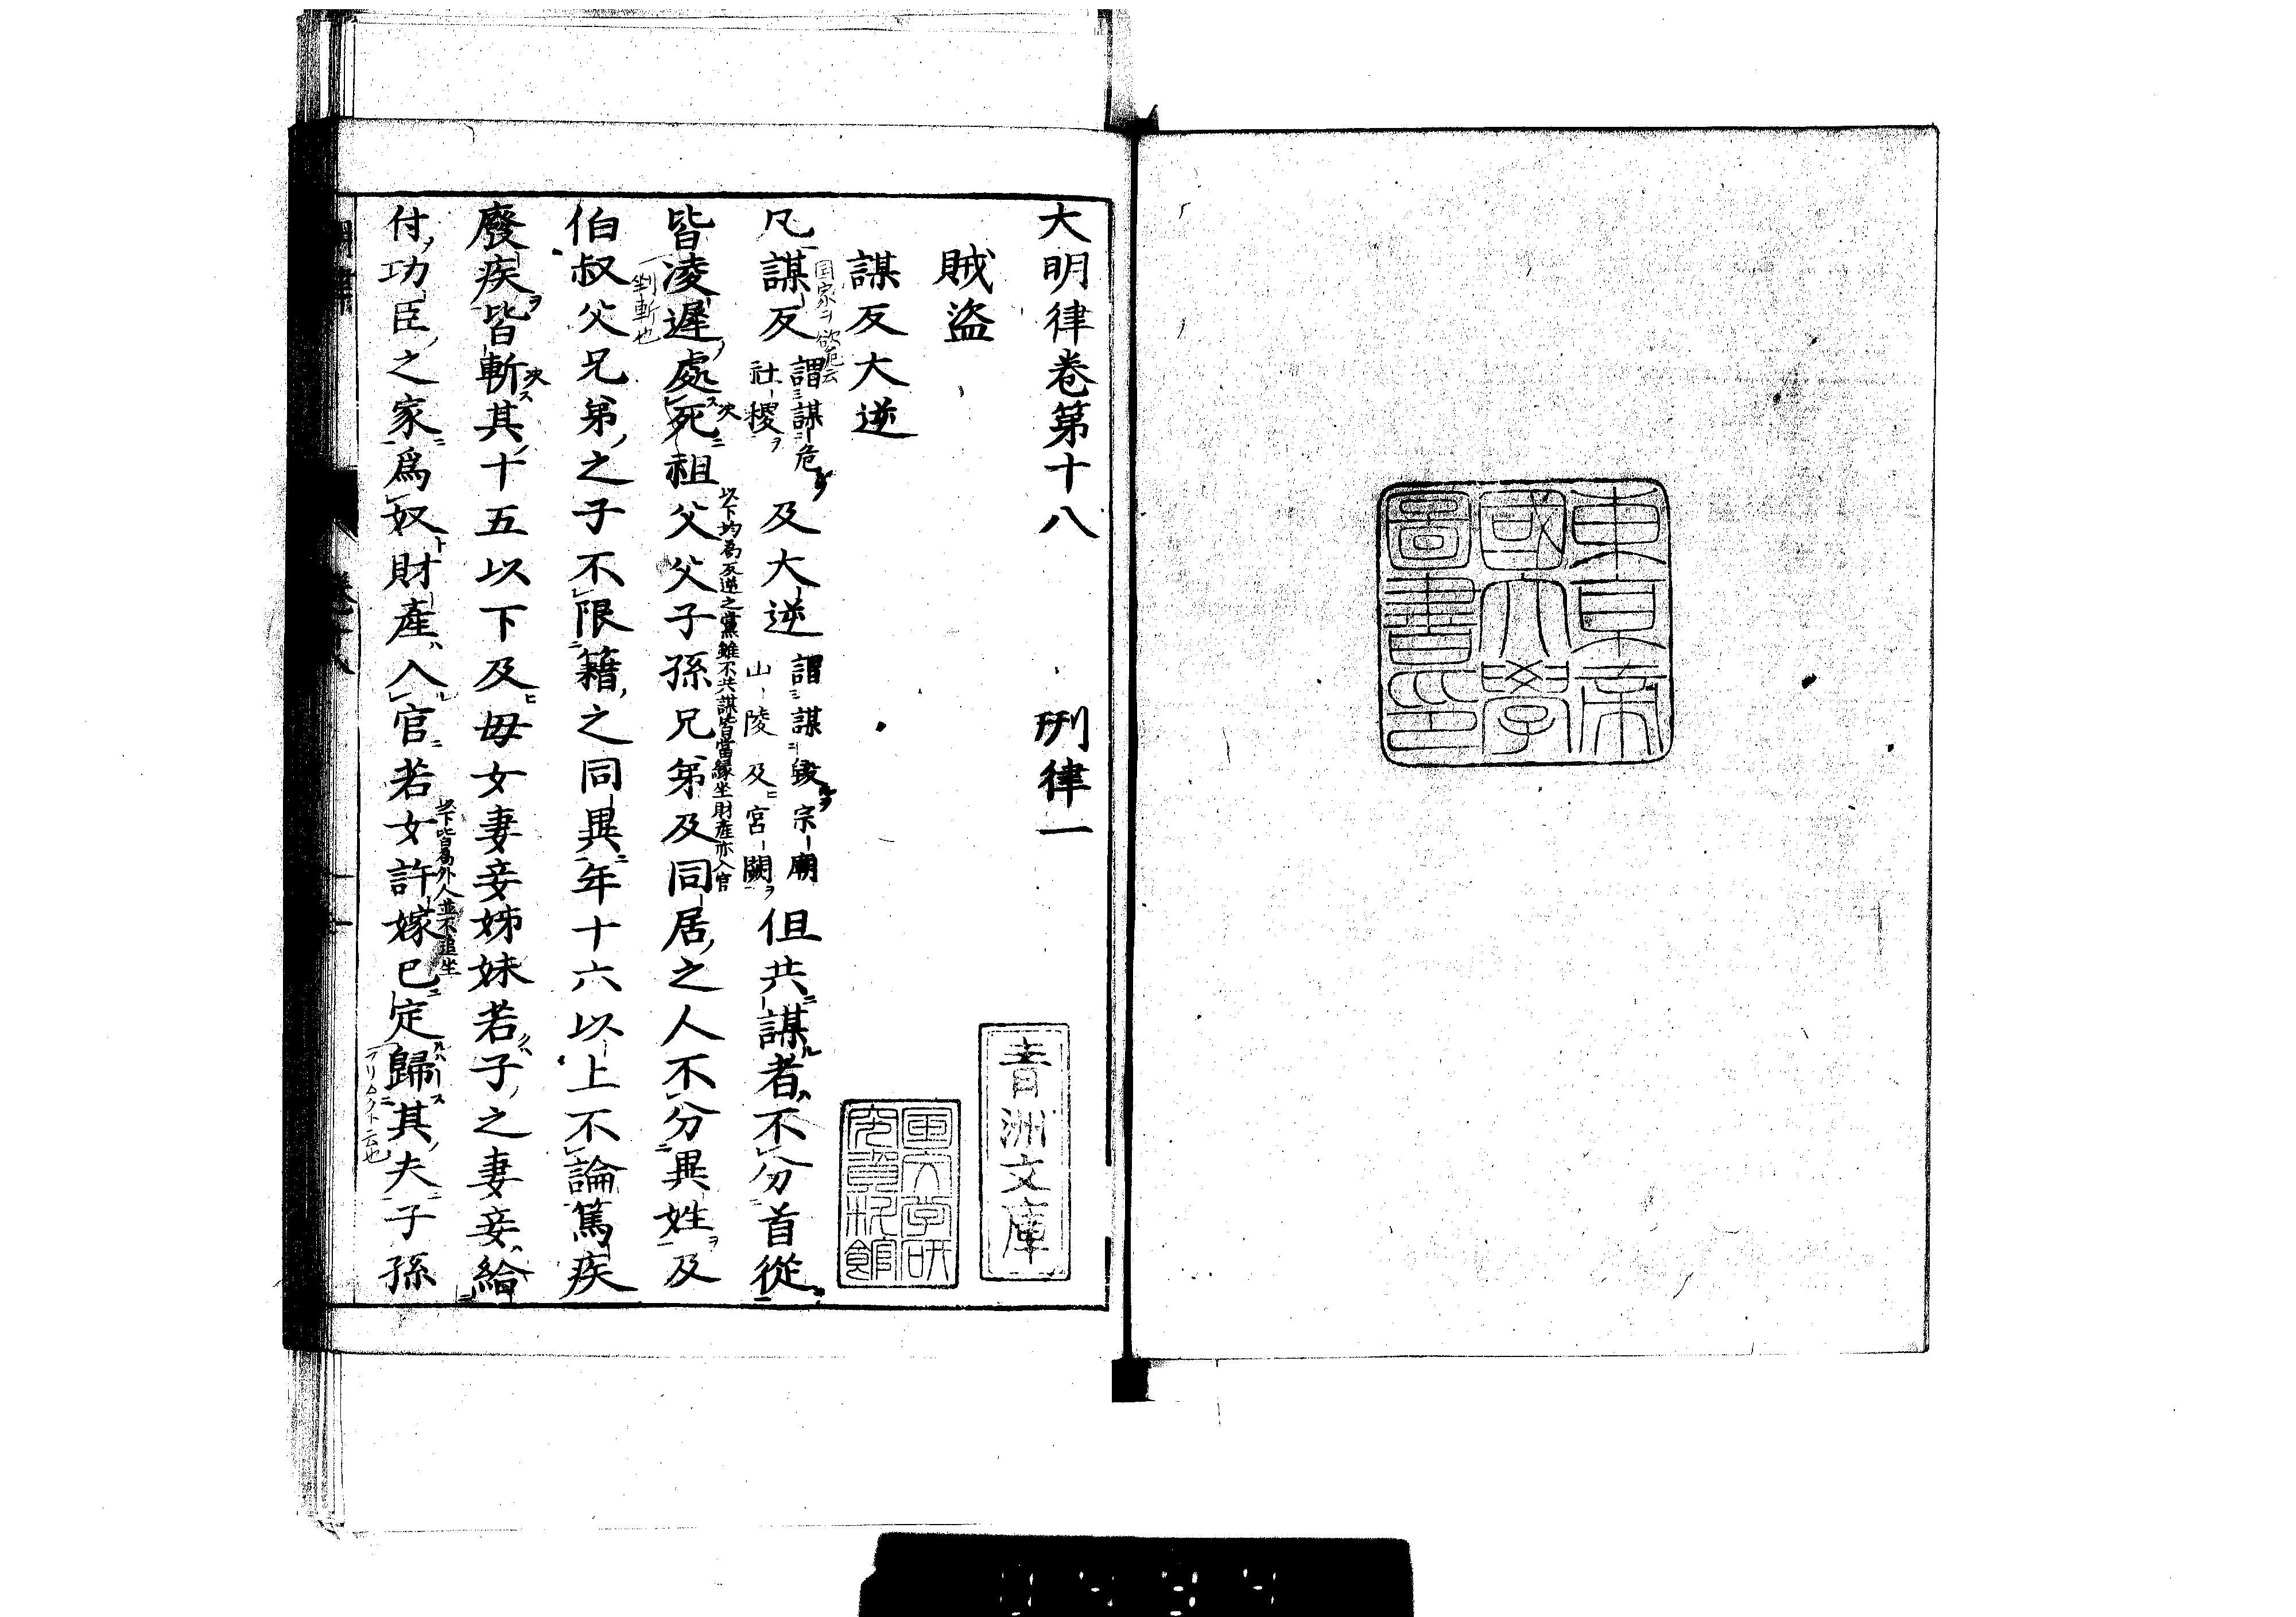 東京帝
國大學
圖書印
大明律卷第十八　刑律一
賊盜
青洲文庫
謀反大逆
国家ヲ欲危云
凡謀反謂謀危社稷及大逆謂謀毀宗廟山陵及宮闕但共謀者不分首從
以下均為反逆之黨雖不共謀皆當緣坐財產亦入官
皆凌遲處死祖父父子孫兄弟及同居之人不分異姓及
剉斬也
伯叔父兄弟之子不限籍之同異年十六以上不論篤疾
廢疾皆斬其十五以下及母女妻妾姊妹若子之妻妾給
以下皆為外人並不追坐
付功臣之家爲奴財產入官若女許嫁已定歸其夫子孫